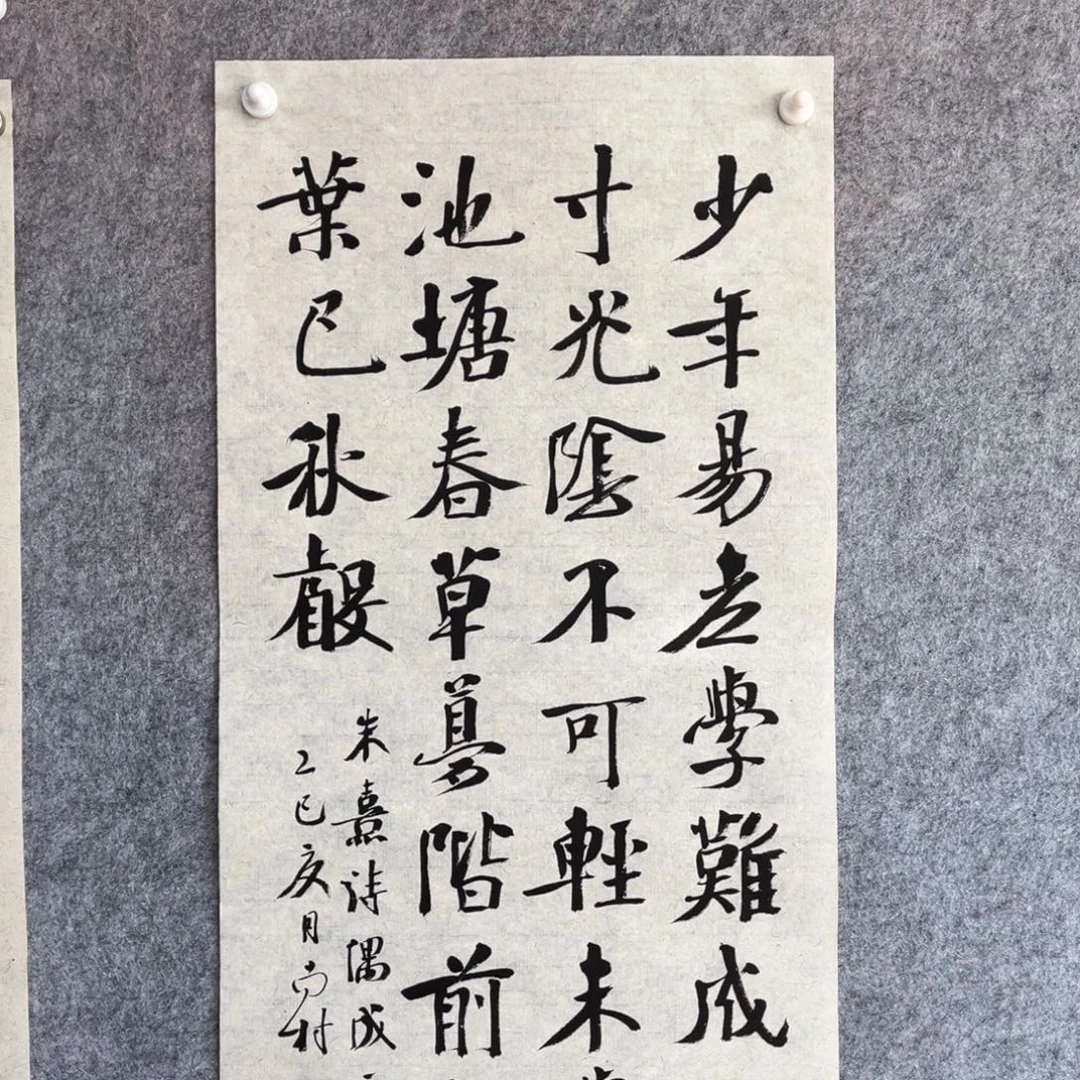 少年易老學難成
寸光陰不可輕未
池塘春草夢階前
葉已秋聲
朱熹詩偶成
乙巳亥月村